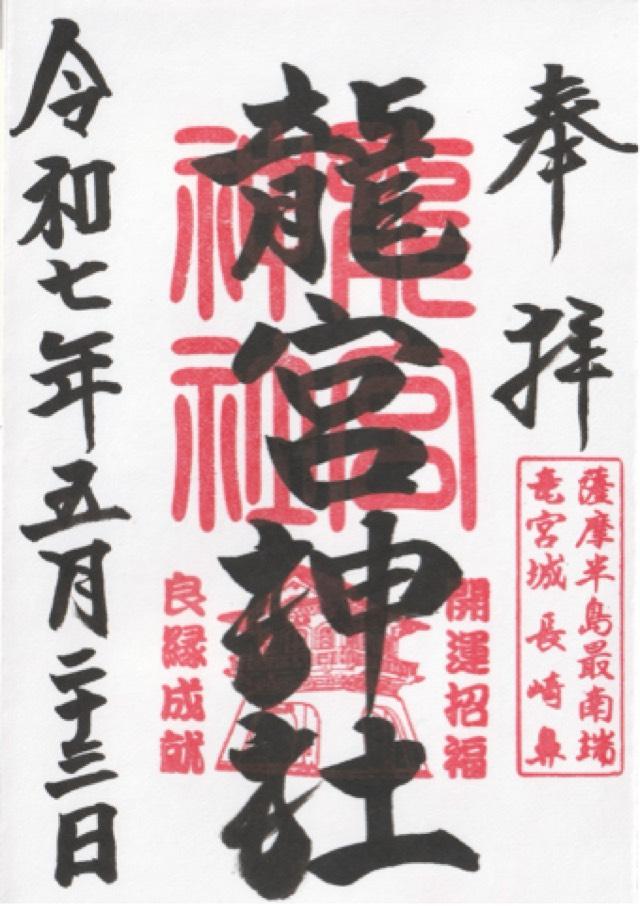 奉拝
薩摩半島最南端
竜宮城長崎鼻
龍宮神社
龍宮
神社
開運招福
良縁成就
令和七年五月二十三日